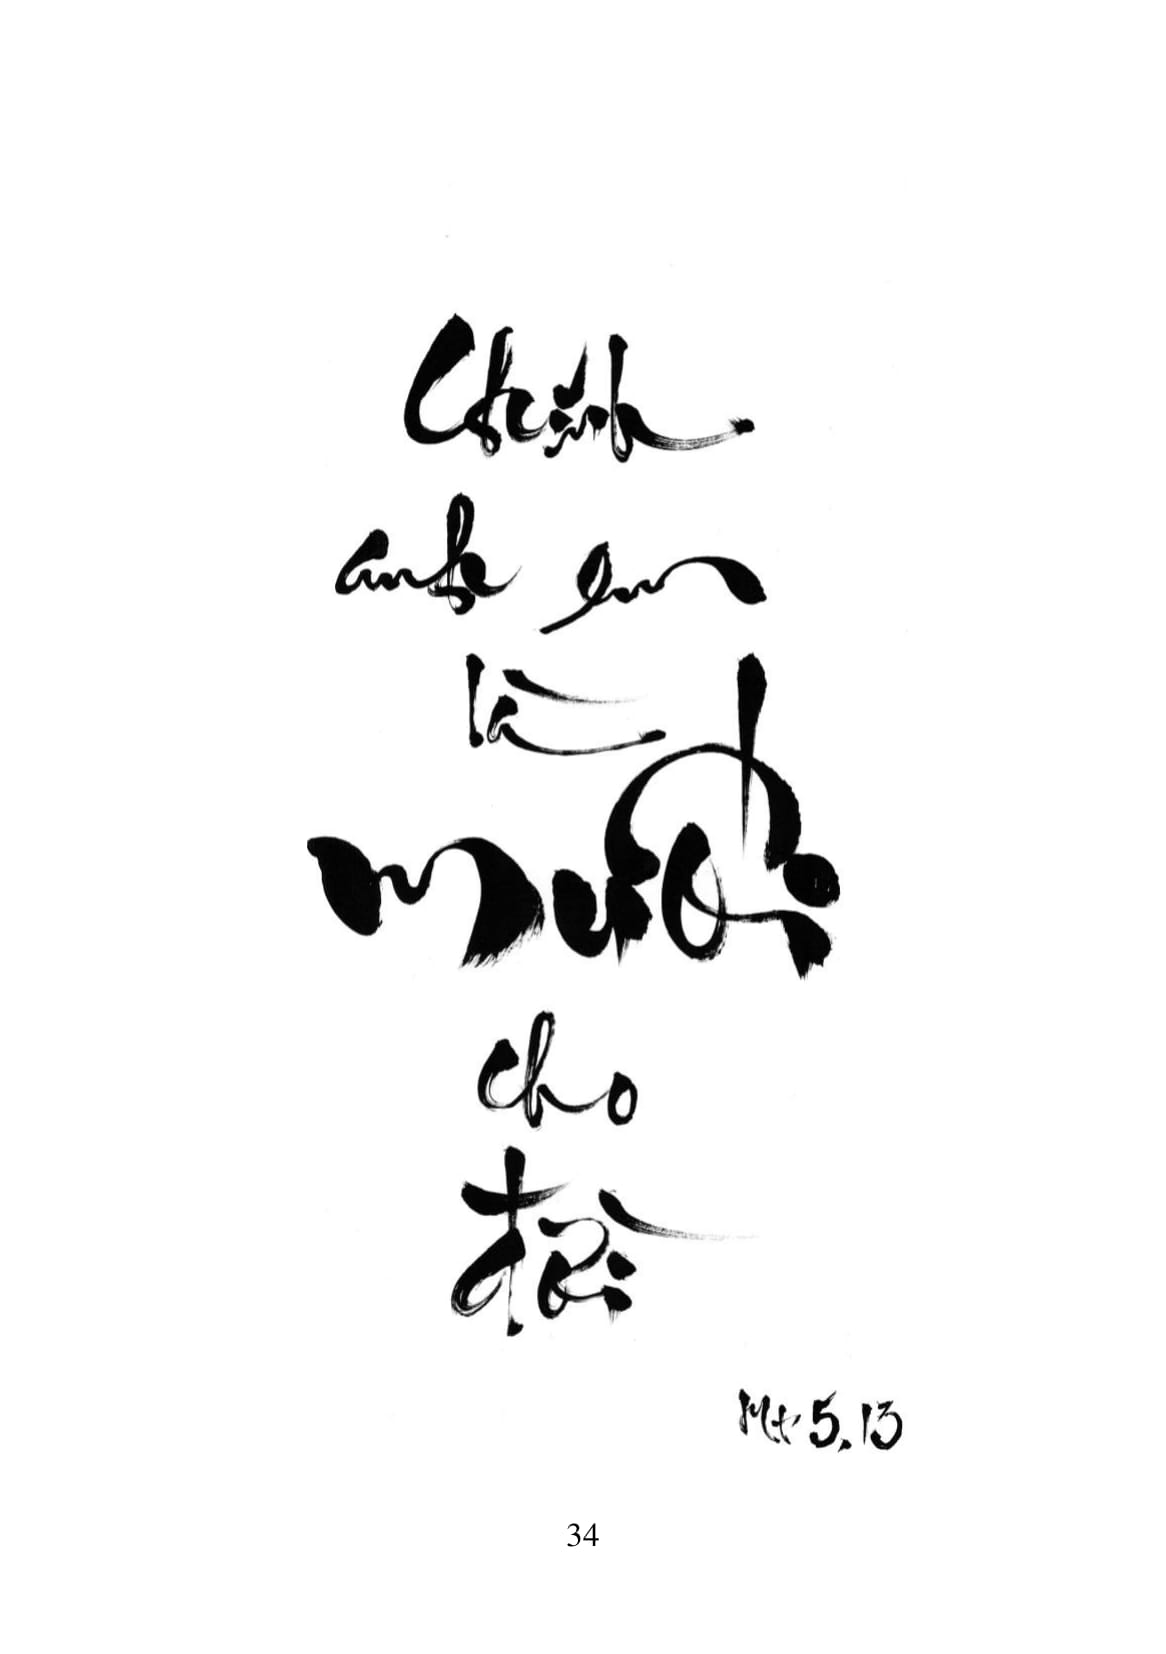 Chính
anh em
là
muối
cho
đời
Mt 5,13
34